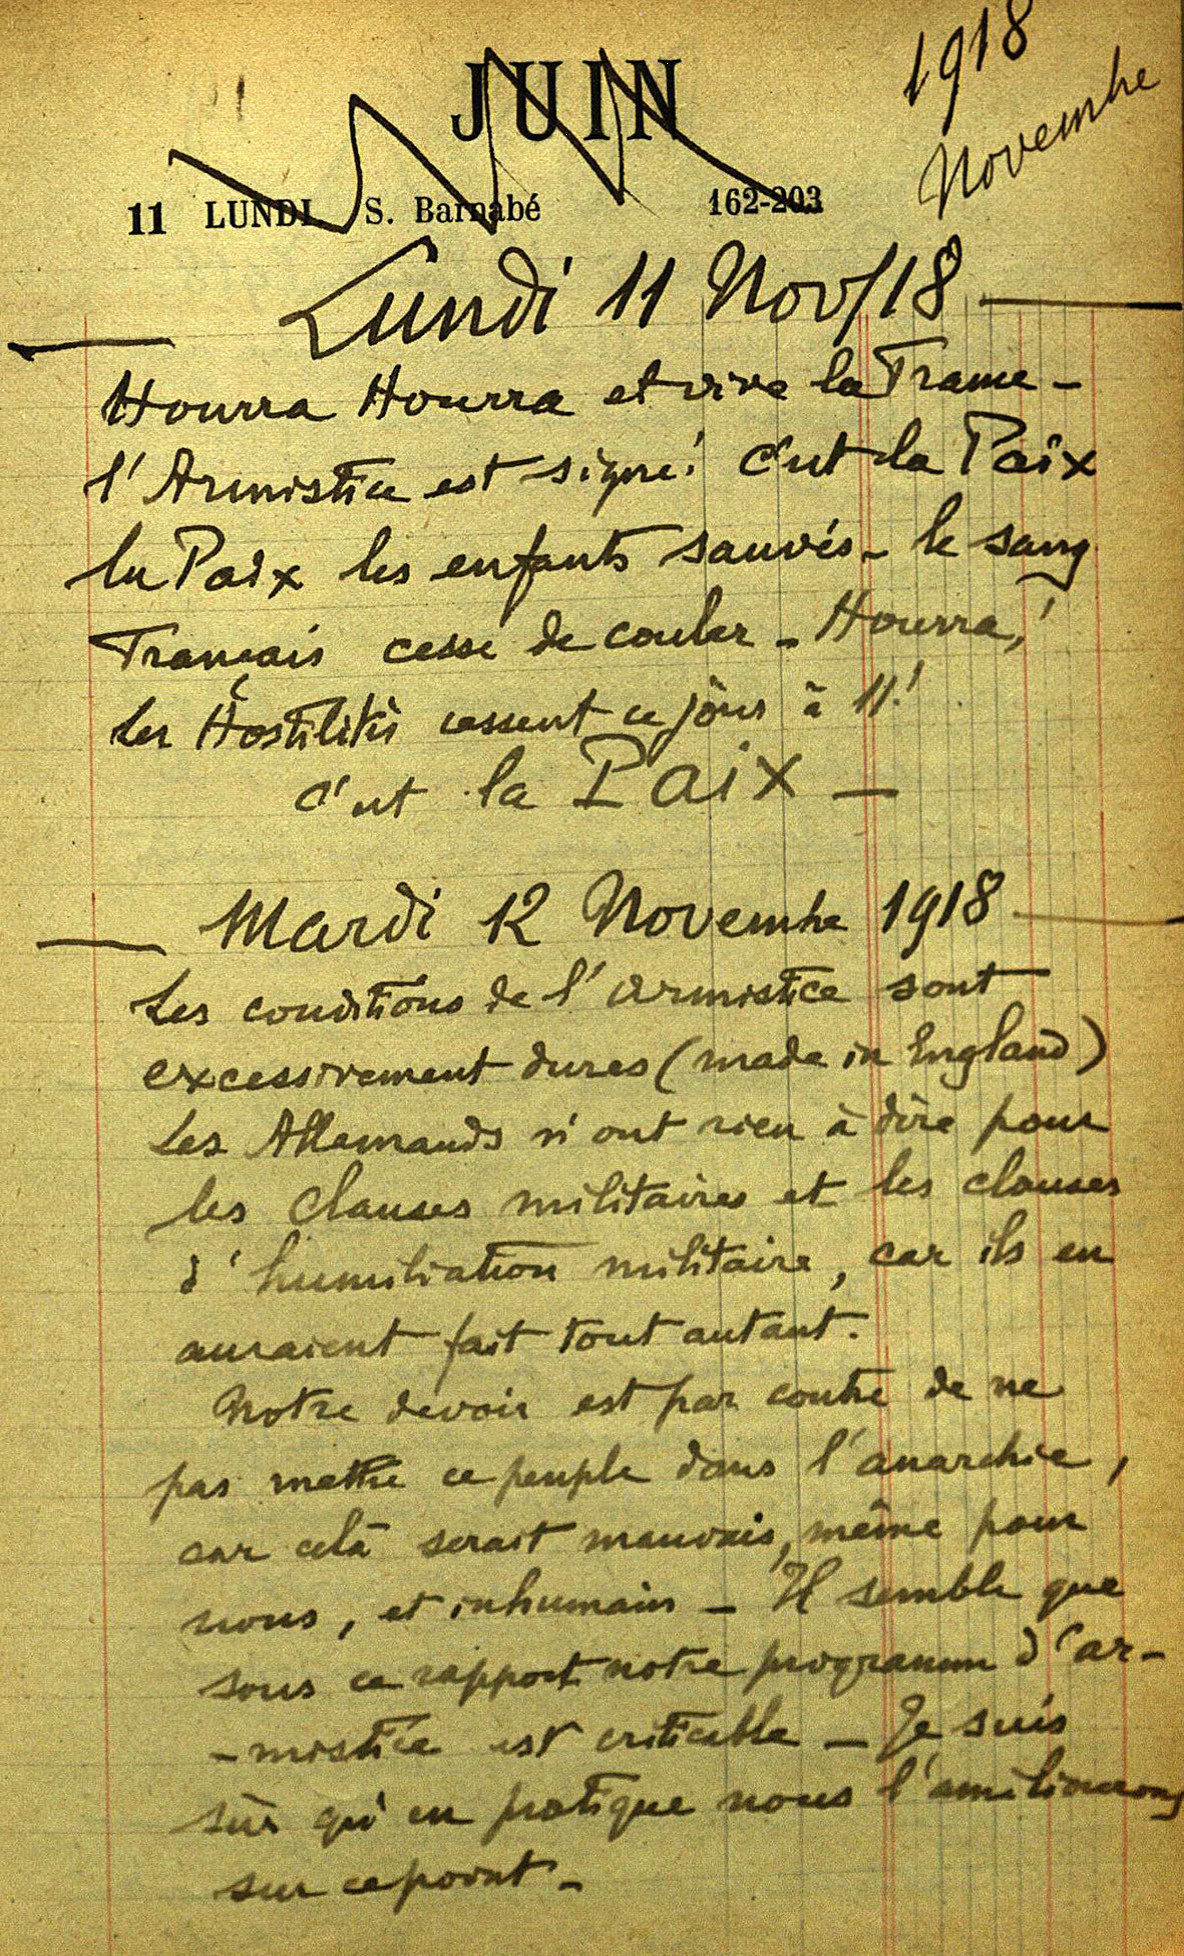 1918
Novembre
JUIN
11 LUNDI S. Barnabé 162-203
Lundi 11 Nov/18
Hourra Hourra et vive la France -
l'Armistice est signé! C'est la Paix
la Paix les enfants sauvés - le sang
Français cesse de couler - Hourra,!
Les Hostilités cessent ce jour à 11!
C'est la Paix -
Mardi 12 Novembre 1918
Les conditions de l'armistice sont
excessivement dures (made in England)
Les Allemands n'ont rien à dire pour
les clauses militaires et les clauses
d'humiliation militaire, car ils en
auraient fait tout autant.
Notre devoir est par contre de ne
pas mettre ce peuple dans l'anarchie,
car celà serait mauvais, même pour
nous, et inhumain - Il semble que
sous ce rapport notre programme d'ar-
-mistice est criticable - Je suis
sûr qu'en pratique nous l'améliorerons
sur ce point -